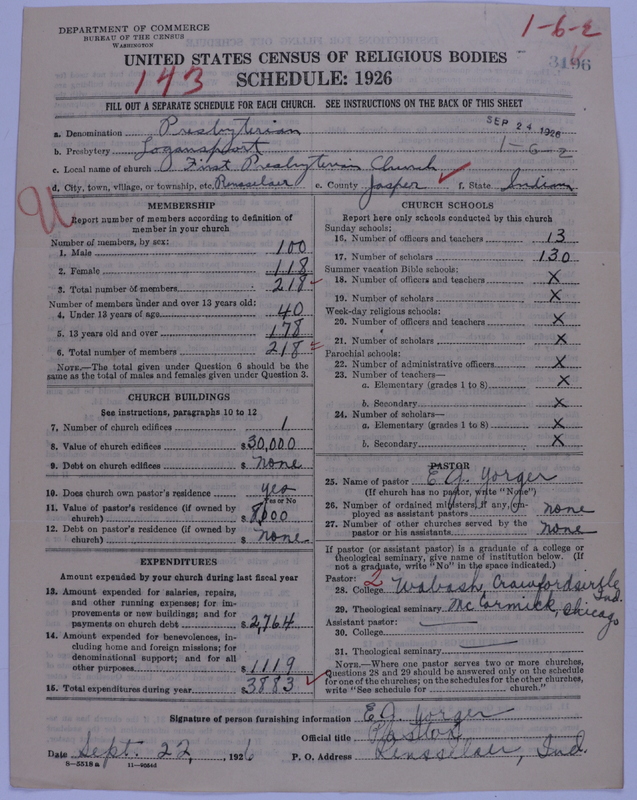 DEPARTMENT OF COMMERCE
BUREAU OF THE CENSUS
WASHINGTON
1-6-2
UNITED STATES CENSUS OF RELIGIOUS BODIES
3196
143
SCHEDULE: 1926
FILL OUT A SEPARATE SCHEDULE FOR EACH CHURCH. SEE INSTRUCTIONS ON THE BACK OF THIS SHEET
a. Denomination Presbyterian
SEP 24 1926
b. Presbytery Logansport
1-6-2
c. Local name of church First Presbyterian Church
d. City, town, village, or township, etc. Rensselaer e. County Jasper f. State Indiana
U
MEMBERSHIP
Report number of members according to definition of
member in your church
Number of members, by sex:
1. Male 100
2. Female 118
3. Total number of members 218
Number of members under and over 13 years old:
4. Under 13 years of age 40
5. 13 years old and over 178
6. Total number of members 218
NOTE.—The total given under Question 6 should be the
same as the total of males and females given under Question 3.
CHURCH BUILDINGS
See instructions, paragraphs 10 to 12
7. Number of church edifices 1
8. Value of church edifices $30,000
9. Debt on church edifices $ none
10. Does church own pastor's residence yes
Yes or No
11. Value of pastor's residence (if owned by
church) $8,000
12. Debt on pastor's residence (if owned by
church) $ none
EXPENDITURES
Amount expended by your church during last fiscal year
13. Amount expended for salaries, repairs,
and other running expenses; for im-
provements or new buildings; and for
payments on church debt $2,764
14. Amount expended for benevolences, in-
cluding home and foreign missions; for
denominational support; and for all
other purposes $1119
15. Total expenditures during year $3883
CHURCH SCHOOLS
Report here only schools conducted by this church
Sunday schools:
16. Number of officers and teachers 13
17. Number of scholars 130
Summer vacation Bible schools:
18. Number of officers and teachers X
19. Number of scholars X
Week-day religious schools:
20. Number of officers and teachers X
21. Number of scholars X
Parochial schools:
22. Number of administrative officers X
23. Number of teachers—
a. Elementary (grades 1 to 8) X
b. Secondary X
24. Number of scholars—
a. Elementary (grades 1 to 8) X
b. Secondary X
PASTOR
25. Name of pastor E. G. Yorger
(If church has no pastor, write "None")
26. Number of ordained ministers, if any, em-
ployed as assistant pastors none
27. Number of other churches served by the
pastor or his assistants none
If pastor (or assistant pastor) is a graduate of a college or
theological seminary, give name of institution below. (If
not a graduate, write "No" in the space indicated.)
Pastor: 2
28. College Wabash, Crawfordsville Ind.
29. Theological seminary McCormick, Chicago
Assistant pastor:
30. College
31. Theological seminary
NOTE.—Where one pastor serves two or more churches,
Questions 28 and 29 should be answered only on the schedule
for one of the churches; on the schedules for the other churches,
write "See schedule for church."
Signature of person furnishing information E. G. Yorger
Official title Pastor
Date Sept. 22, 1926 P. O. Address Rensselaer, Ind.